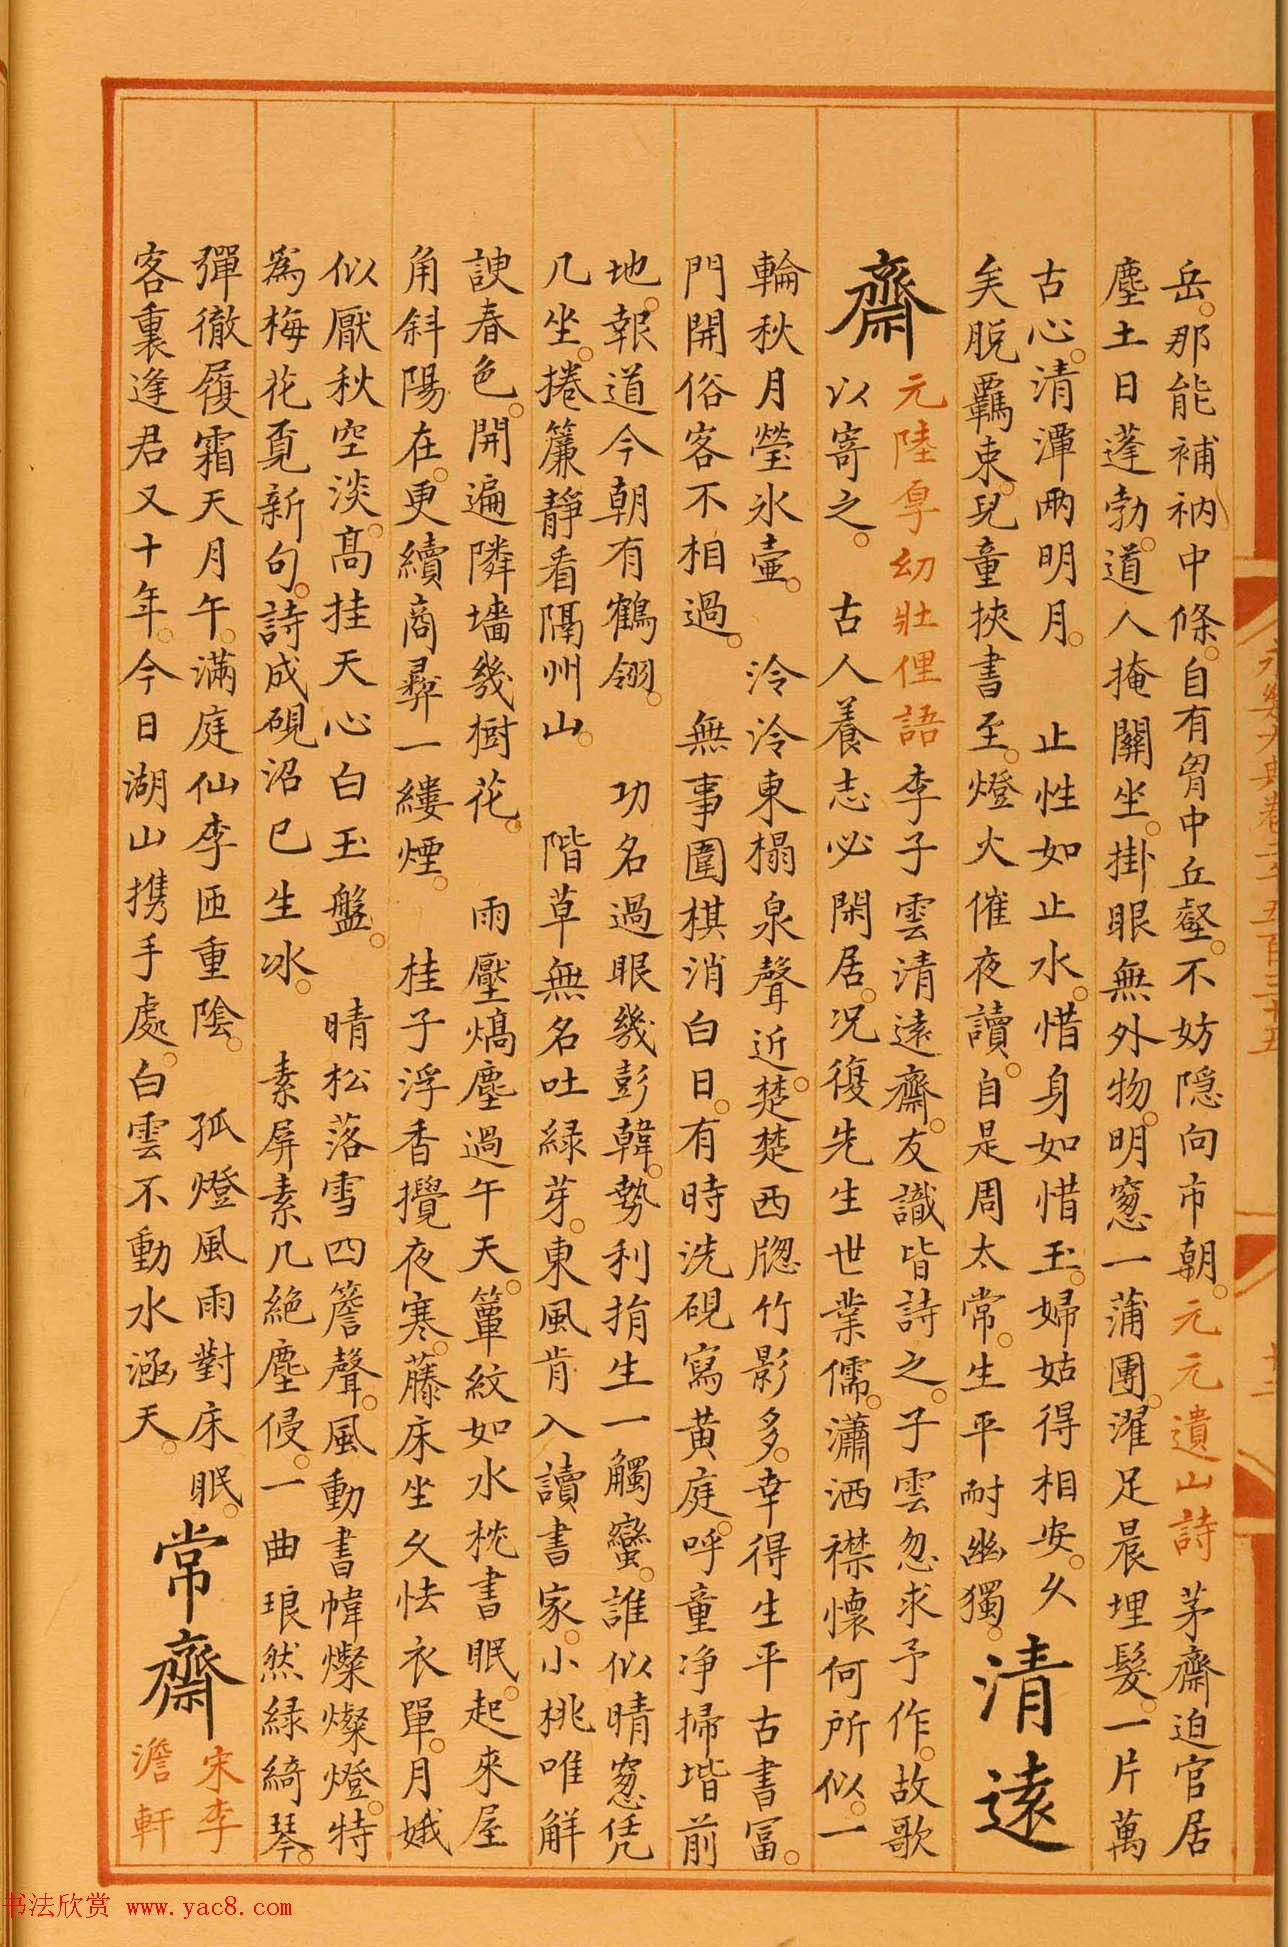 永樂大典卷二千五百三十五
岳。那能補衲中條。自有胷中丘壑。不妨隱向市朝。元元遺山詩 茅齋迫官居
塵土日蓬勃。道人掩關坐。掛眼無外物。明窻一蒲團。濯足晨埋髮。一片萬
古心。清渾兩明月。 止性如止水。惜身如惜玉。婦姑得相安。久
矣脫羈束。兒童挾書至。燈火催夜讀。自是周太常。生平耐幽獨。
清遠
齋
元陸厚幼壯俚語 李子雲清遠齋。友識皆詩之。子雲忽求予作。故歌
以寄之。 古人養志必閑居。況復先生世業儒。瀟洒襟懷何所似。一
輪秋月瑩氷壼。 泠泠東榻泉聲近。楚楚西牕竹影多。幸得生平古書冨。
門開俗客不相過。 無事圍棋消白日。有時洗硯寫黃庭。呼童净掃堦前
地。報道今朝有鶴翎。 功名過眼幾彭韓。勢利捐生一觸蠻。誰似晴窻凭
几坐。捲簾靜看隔州山。 階草無名吐緑芽。東風肯入讀書家。小桃唯解
諛春色。開遍隣墻幾樹花。 雨壓熇塵過午天。簟紋如水枕書眠。起來屋
角斜陽在。更續商彝一縷煙。 桂子浮香攪夜寒。藤床坐久怯衣單。月娥
似厭秋空淡。髙挂天心白玉盤。 晴松落雪四簷聲。風動書幃燦燦燈。特
爲梅花覔新句。詩成硯沼已生冰。 素屏素几絶塵侵。一曲琅然緑綺琴。
彈徹履霜天月午。滿庭仙李匝重陰。 孤燈風雨對床眠。
客裏逢君又十年。今日湖山携手處。白雲不動水涵天。
常齋
宋李
澹軒
书法欣赏 www.yac8.com